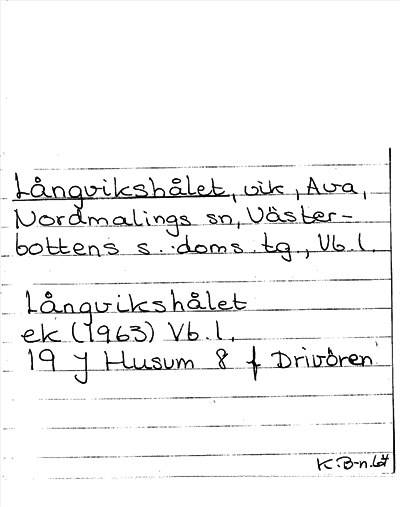 Långvikshålet, vik, Ava,
Nordmalings sn, Väster-
bottens s. doms. tg., Vb. l.
Långvikshålet
ek (1963) Vb. l.
19 J Husum 8 f Drivören
K. B-n. 64